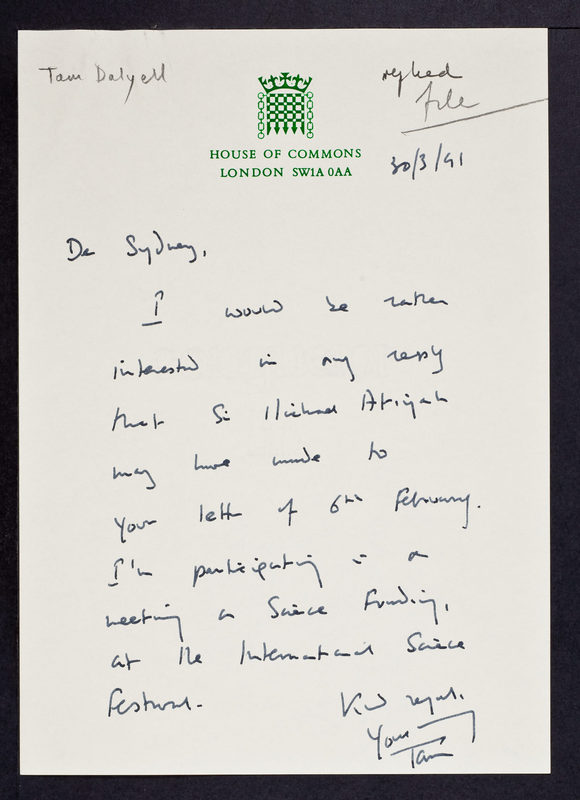 Tam Dalyell
replied
file
HOUSE OF COMMONS
LONDON SW1A 0AA
30/3/91
De Sydney,
I would be rather
interested in any reply
that Sir Michael Atiyah
may have made to
your letter of 6th February.
I'm participating in a
meeting on Science Funding,
at the International Science
Festival.
Kind regards.
Yours
Tam